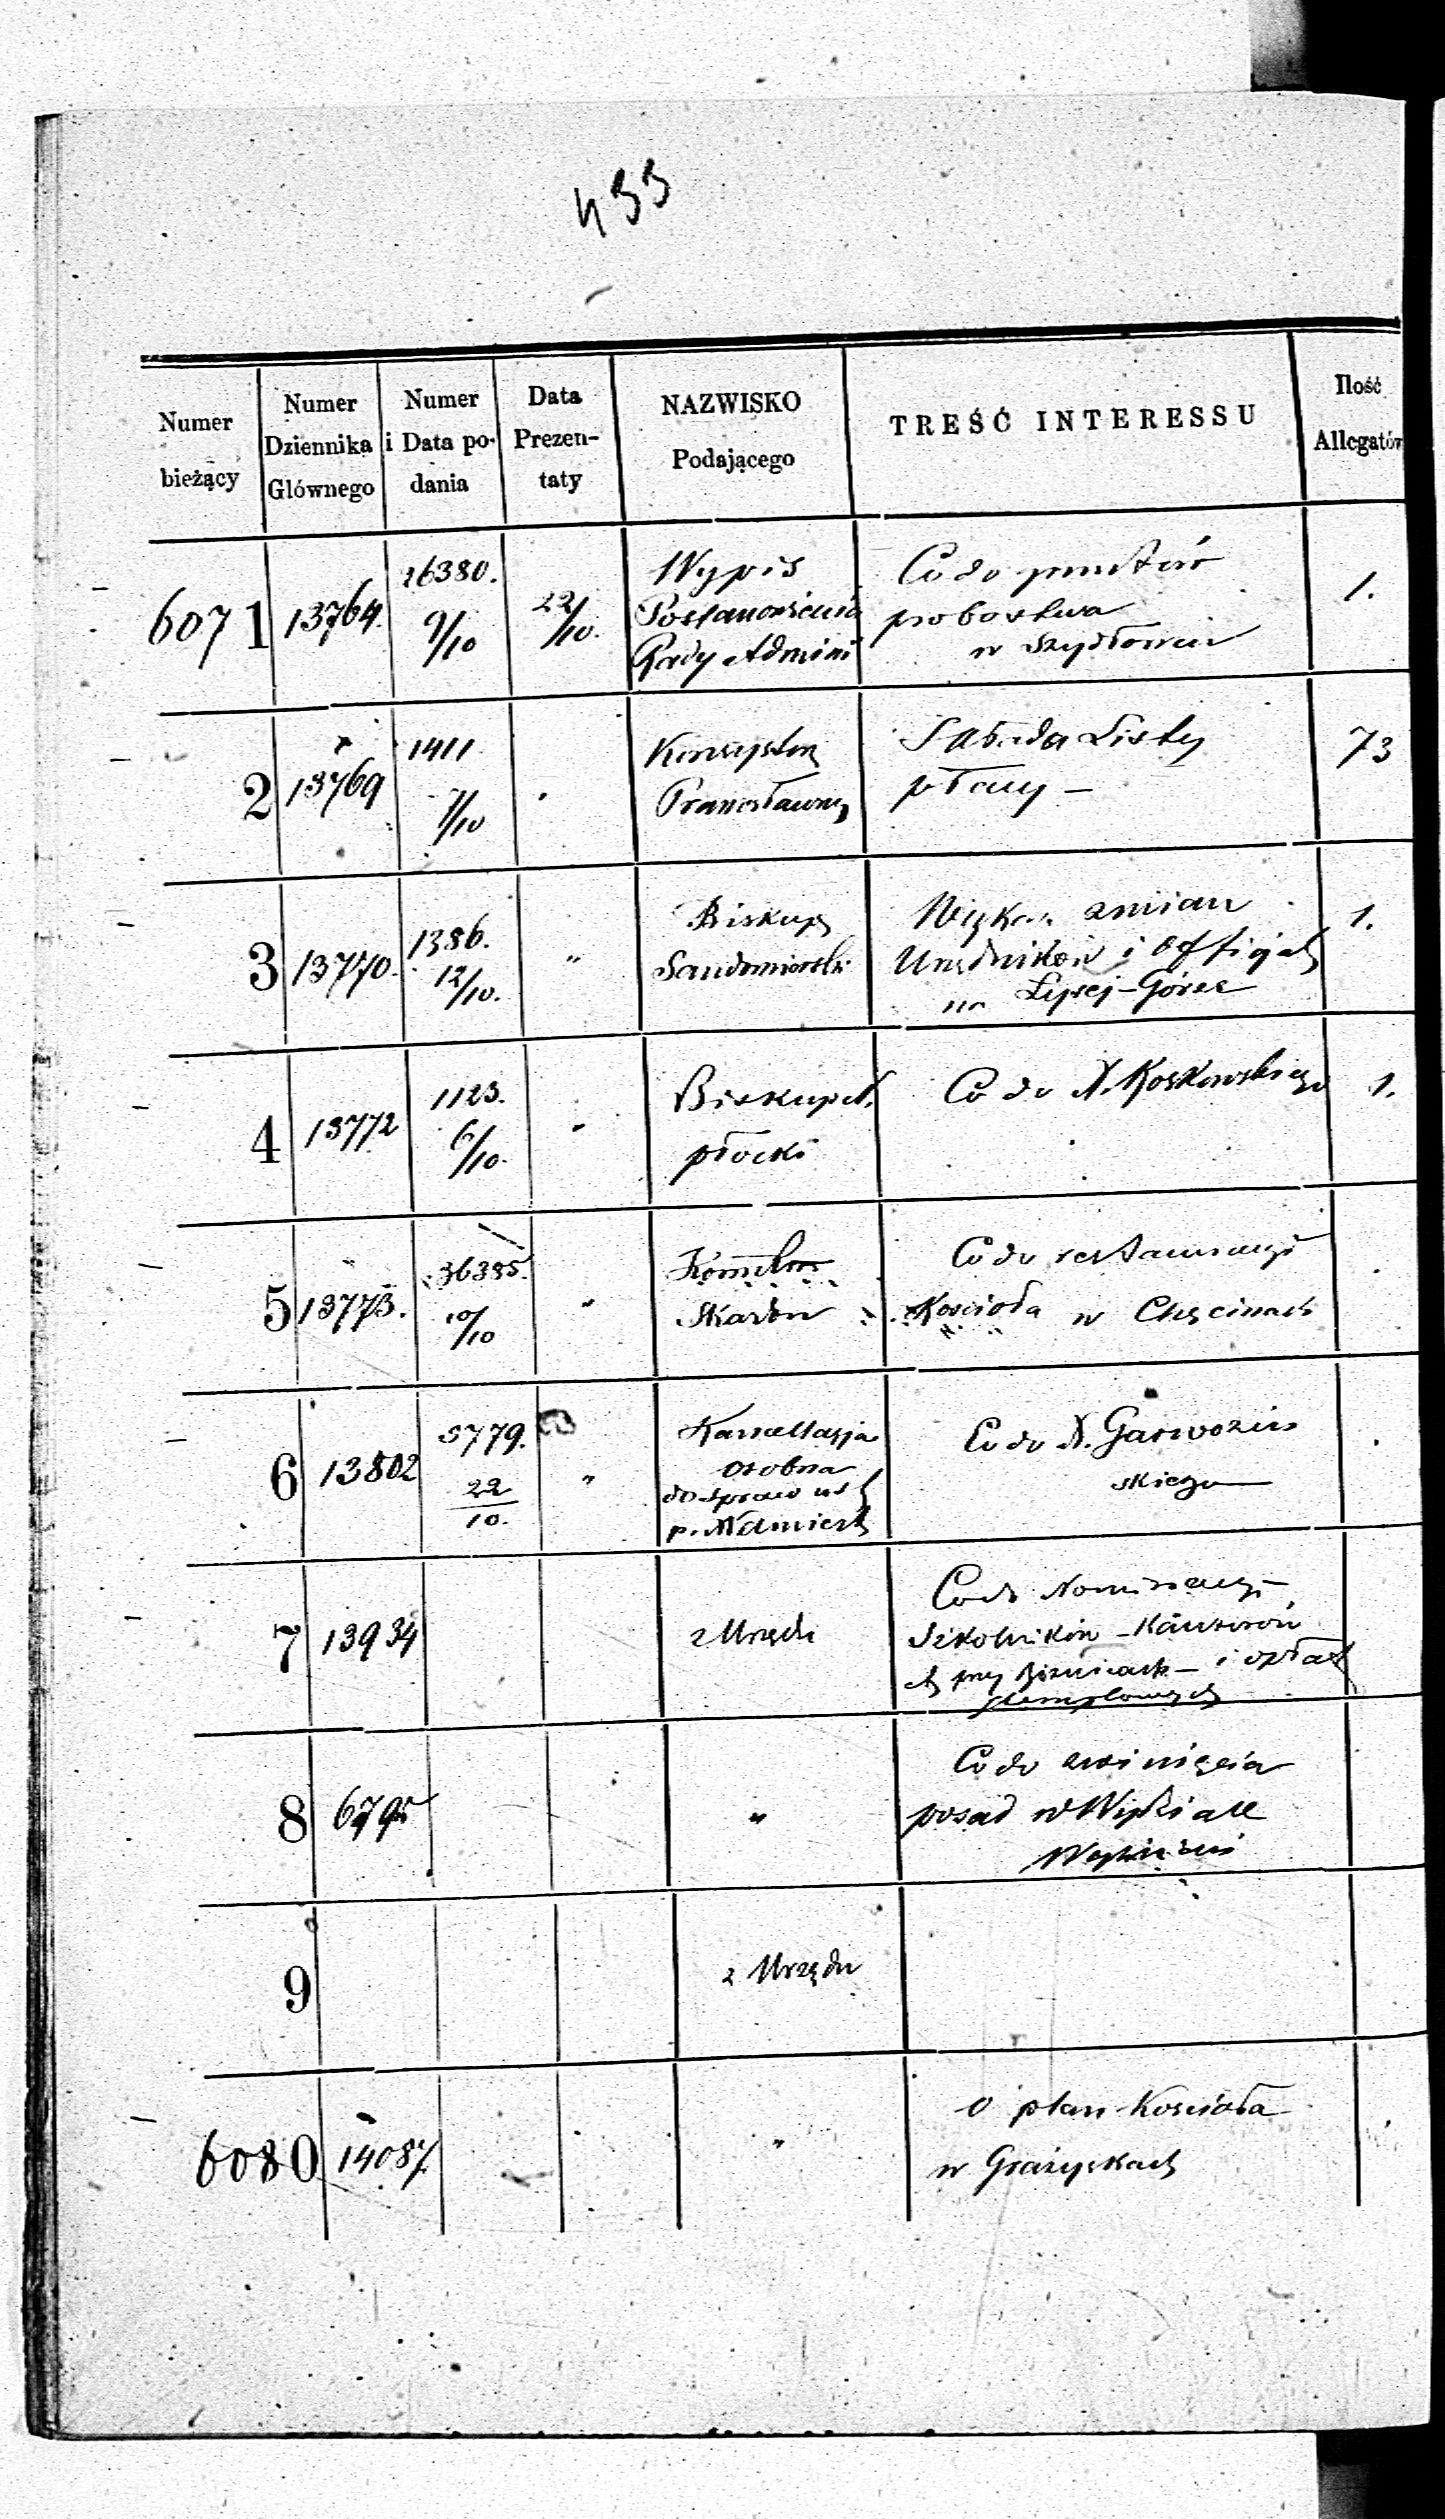 433
Numer bieżący
Numer Dziennika Głównego
Numer i Data podania
Data Prezentaty
NAZWISKO Podającego
TREŚĆ INTERESSU
Ilość Allegatów
6071 13764. 26380. 9/10 22/10. Wypis Postanowienia Rady Admini Co do pustów probostwa w Szydłowcu 1.
2 13769 1411 7/10 Konsystorz Prawosławny Składa Listy płacy – 73
3 13770. 1386. 12/10. " Biskup Sandomierski Wykaz zmian Urzędników i Officjal na Łysej-Górze 1.
4 13772 1123. 6/10. " Biskup płocki Co do X. Koskowskiego 1.
5 13773. 36385. 10/10 " Skarbu Co do restauracyi Kościoła w Chęcinach
6 13802 5779. 22/10. " Kancellarja osobna do spraw p. Namiest Co do X. Garwoziń skiego
7 13934 z Urzędu Co do Nominacyi Szkolników – Kantorów przy Bożnicach – i opłat stemplowych
8 679 " Co do zwinięcia posad w Wydziale Wyznań
9 z Urzędu
6080 14087. " O plan Kościoła w Grażyszkach